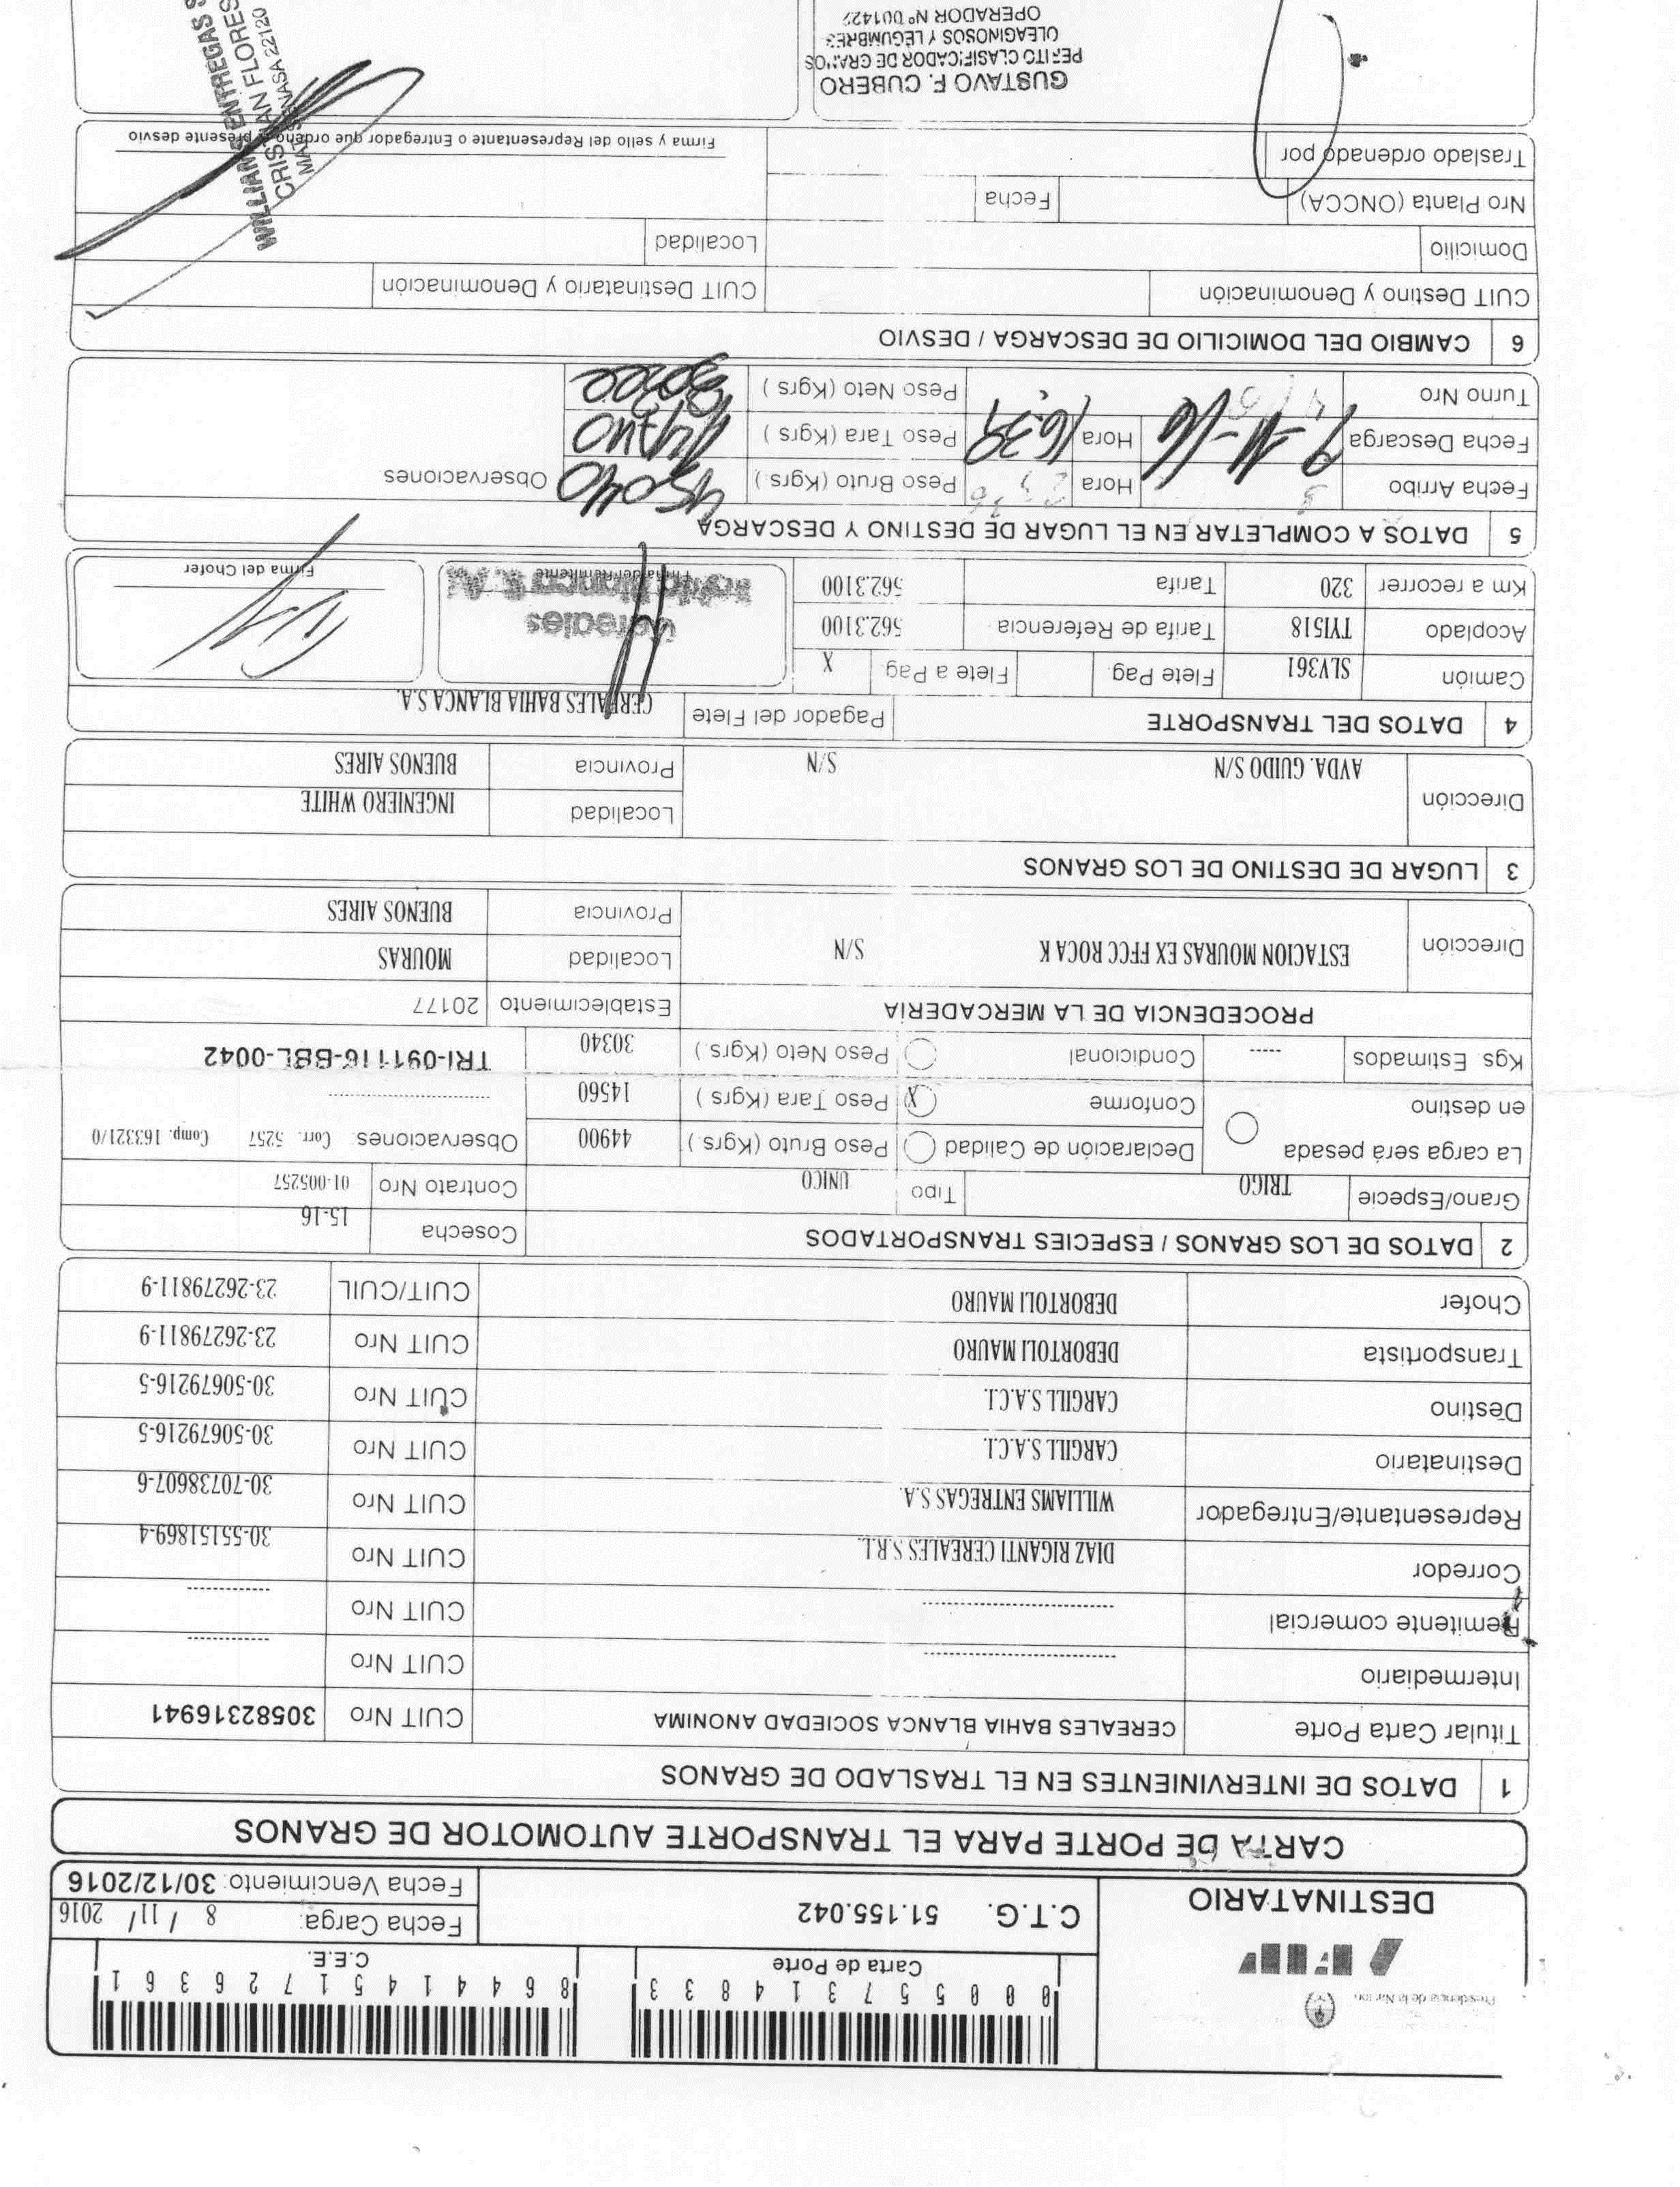 Presidencia de la Nación
AFIP
DESTINATARIO
000557314833
Carta de Porte
86441451726361
C.E.E.
C.T.G. 51.155.042
Fecha Carga: 8 / 11 / 2016
Fecha Vencimiento: 30/12/2016
CARTA DE PORTE PARA EL TRANSPORTE AUTOMOTOR DE GRANOS
1 DATOS DE INTERVINIENTES EN EL TRASLADO DE GRANOS
Titular Carta Porte CEREALES BAHIA BLANCA SOCIEDAD ANONIMA CUIT Nro 30582316941
Intermediario ---------- CUIT Nro ----------
Remitente comercial ---------- CUIT Nro ----------
Corredor DIAZ RIGANTI CEREALES S.R.L. CUIT Nro 30-55151869-4
Representante/Entregador WILLIAMS ENTREGAS S.A. CUIT Nro 30-70738607-6
Destinatario CARGILL S.A.C.I. CUIT Nro 30-50679216-5
Destino CARGILL S.A.C.I. CUIT Nro 30-50679216-5
Transportista DEBORTOLI MAURO CUIT Nro 23-26279811-9
Chofer DEBORTOLI MAURO CUIT/CUIL 23-26279811-9
2 DATOS DE LOS GRANOS / ESPECIES TRANSPORTADOS Cosecha 15-16
Grano/Especie TRIGO Tipo UNICO Contrato Nro 01-005257
La carga será pesada en destino Declaración de Calidad Peso Bruto (Kgrs.) 44900 Observaciones: Corr. 5257 Comp. 163321/0
Conforme X Peso Tara (Kgrs.) 14560 ----------
Kgs. Estimados ----- Condicional Peso Neto (Kgrs.) 30340 TRI-091116-BBL-0042
PROCEDENCIA DE LA MERCADERÍA Establecimiento 20177
Dirección ESTACION MOURAS EX FFCC ROCA K S/N Localidad MOURAS
Provincia BUENOS AIRES
3 LUGAR DE DESTINO DE LOS GRANOS
Dirección AVDA. GUIDO S/N S/N Localidad INGENIERO WHITE
Provincia BUENOS AIRES
4 DATOS DEL TRANSPORTE Pagador del Flete CEREALES BAHIA BLANCA S.A.
Camión SLV361 Flete Pag. Flete a Pag X
Acoplado TYI518 Tarifa de Referencia 562.3100
Km a recorrer 320 Tarifa 562.3100
Cereales
Bahía Blanca S.A.
Firma del Remitente
Firma del Chofer
5 DATOS A COMPLETAR EN EL LUGAR DE DESTINO Y DESCARGA
Fecha Arribo Hora Peso Bruto (Kgrs.) 45040 Observaciones
Fecha Descarga 9-11-16 Hora 16:39 Peso Tara (Kgrs.) 14740
Turno Nro Peso Neto (Kgrs.)
6 CAMBIO DEL DOMICILIO DE DESCARGA / DESVIO
CUIT Destino y Denominación CUIT Destinatario y Denominación
Domicilio Localidad
Nro Planta (ONCCA) Fecha
Traslado ordenado por Firma y sello del Representante o Entregador que ordenó el presente desvio
GUSTAVO F. CUBERO
PERITO CLASIFICADOR DE GRANOS
OLEAGINOSOS Y LEGUMBRES
OPERADOR Nº 001427
WILLIAMS ENTREGAS S
CRISTIAN FLORES
MAT. SENASA 22120